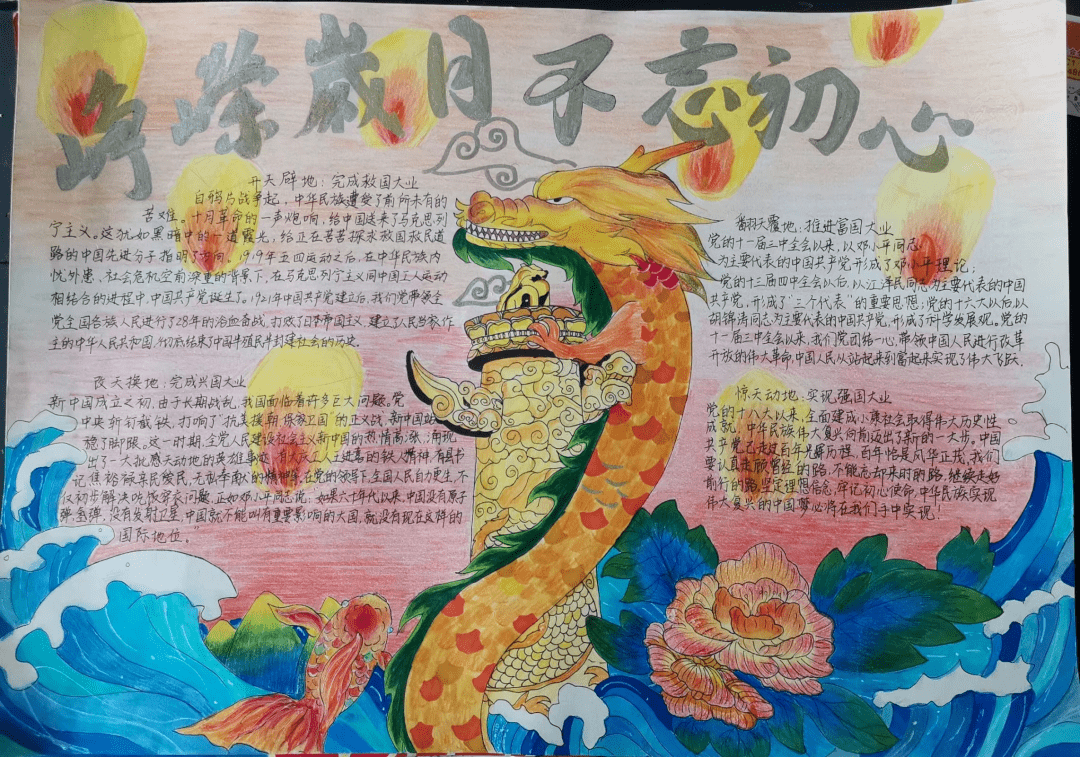 峥嵘歲月不忘初心
开天辟地：完成救国大业
自鸦片战争起，中华民族遭受了前所未有的
苦难。十月革命的一声炮响，给中国送来了马克思列
宁主义。这犹如黑暗中的一道霞光，给正在苦苦探求救国救民道
路的中国先进分子指明了方向。1919年五四运动之后，在中华民族内
忧外患、社会危机空前深重的背景下，在马克思列宁主义同中国工人运动
相结合的进程中，中国共产党诞生了。1921年中国共产党建立后，我们党带领全
党全国各族人民进行了28年的浴血奋战，打败了日本帝国主义，建立了人民当家作
主的中华人民共和国，彻底结束了中国半殖民半封建社会的历史.
改天换地：完成兴国大业
新中国成立之初，由于长期战乱，我国面临着许多巨大问题。党
中央斩钉截铁，打响了"抗美援朝·保家卫国"的正义战，新中国站
稳了脚跟。这一时期，全党人民建设社会主义新中国的热情高涨，涌现
出了一大批感天动地的英雄事迹，有大庆工人王进喜的铁人精神，有县书
记焦裕禄亲民爱民，无私奉献的精神等，在党的领导下，全国人民自力更生，不
仅初步解决吃饭穿衣问题，正如邓小平同志说：如果六十年代以来，中国没有原子
弹、氢弹，没有发射卫星，中国就不能叫有重要影响的大国，就没有现在这样的
国际地位。
翻天覆地，推进富国大业
党的十一届三中全会以来，以邓小平同志
为主要代表的中国共产党形成了邓小平理论；
党的十三届四中全会以后，以江泽民同志为主要代表的中国
共产党，形成了"三个代表"的重要思想；党的十六大以后，以
胡锦涛同志为主要代表的中国共产党，形成了科学发展观。党的
十一届三中全会以来，我们党团结一心，带领中国人民进行改革
开放的伟大革命，中国人民从站起来到富起来实现了伟大飞跃.
惊天动地，实现强国大业
党的十八大以来，全面建成小康社会取得伟大历史性
成就，中华民族伟大复兴向前迈出了新的一大步。中国
共产党已走过百年光辉历程，百年恰是风华正茂，我们
要认真回顾曾经的路，不能忘却来时的路，继续走好
前行的路，坚定理想信念，牢记初心使命，中华民族实现
伟大复兴的中国梦必将在我们手中实现！